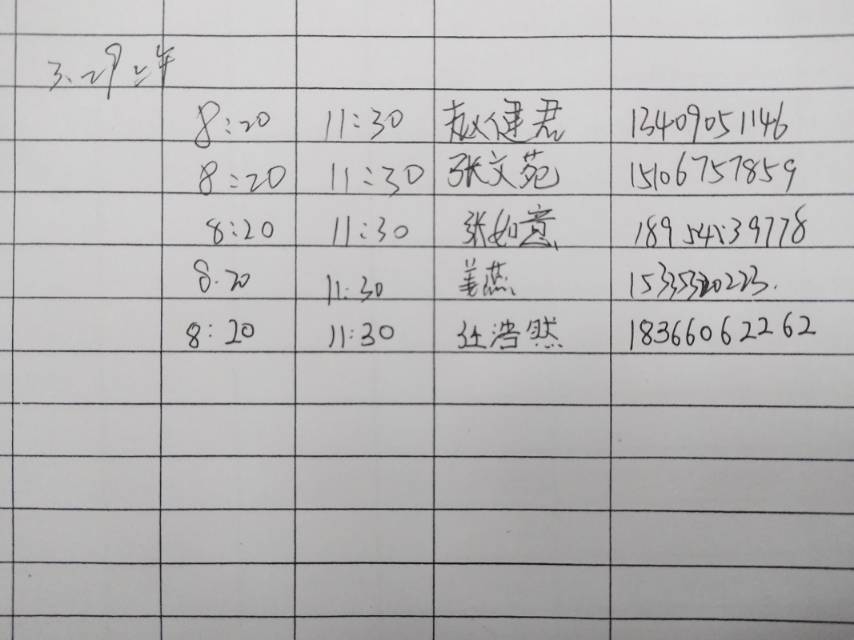 3.29上午
8:20 11:30 赵健君 13409051146
8:20 11:30 张文苑 15106757859
8:20 11:30 张如意 18954539778
8.20 11:30 姜燕
8:20 11:30 任浩然 18366062262